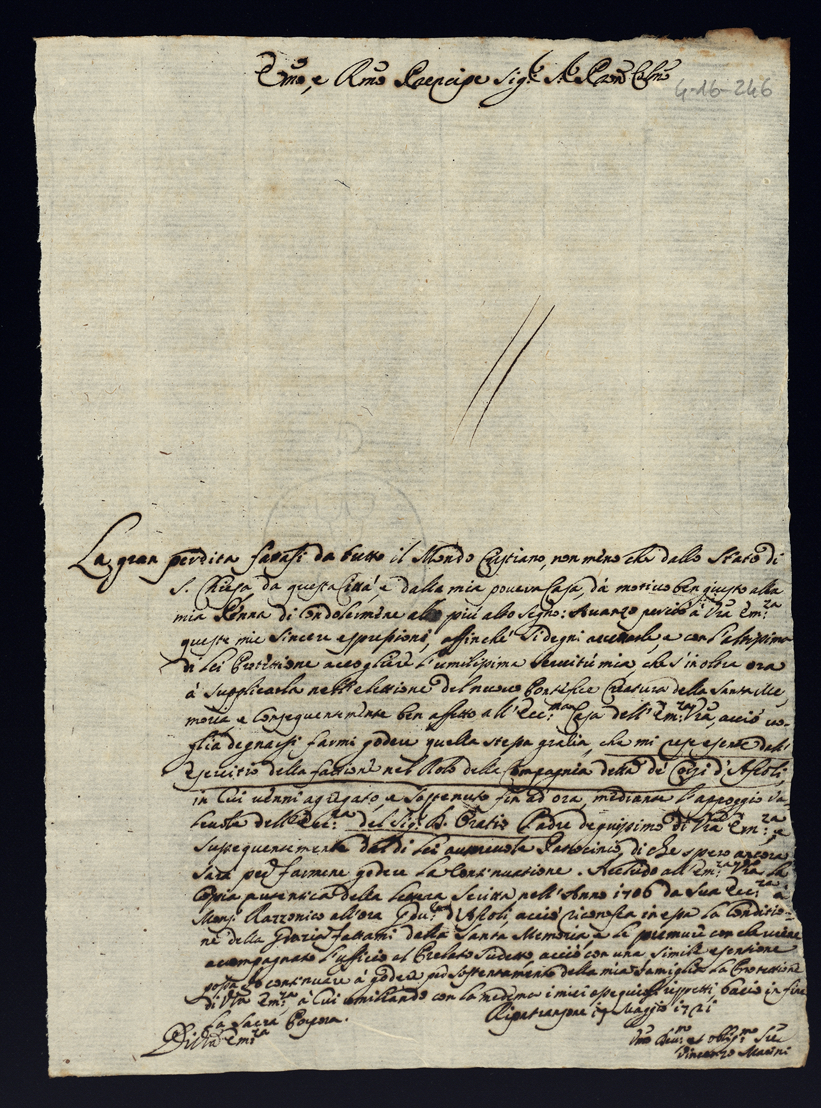 Emo, e Rmo Prencipe Sig.r Sig.r Pron Colmo
4-16-246
La gran perdita fatasi da tutto il Mondo Cristiano, non meno che dallo Stato di
S. Chiesa da questa Città, e dalla mia povera Casa, dà motivo ben giusto alla
mia Penna di condolermene al più alto segno: Avanzo perciò à Vra Em.za
queste mie sincere espressioni, affinché si degni accettarle, e con l'altissima
di lei Protettione accogliere l'umilissima servitù mia che s'inoltra ora
à supplicarla nell'elettione del nuovo Pontefice Creatura della Santa Me-
moria e conseguentemente ben affetto all'Ecc.ma Casa dell'Em.za Vra, acciò vo-
glia degnarsi farmi godere quella stessa gratia, che mi esentò dall'
esercitio della fatione nel Rolo della Compagnia detta de Corsi d'Ascoli,
in cui venni agregato, e sostenuto fin ad ora, mediante l'appoggio va-
levole dell'Ecc.za del Sig. D. Oratio Padre degnissimo di Vra Em.za, e
sussequentemente dal di lei autorevole Patrocinio, di che spero ancora
sarà per farmene godere la continuatione. Accludo all'Em.za Vra la
Copia autentica della lettera scritta nell'Anno 1706 da Sua Ecc.za à
Mons. Razzonico all'ora Gov.re d'Ascoli, acciò riconosca in essa la Conditio-
ne della Grazia fattami dalla Santa Memoria, e le premure con che viene
acompagnato l'ufficio al Prelato sudetto, acciò con una simile esentione
possa io continuare à godere per sostentamento della mia famiglia la Protettione
di Vra Em.za à cui umiliando con la medema i miei ossequiosi rispetti, bacio in fine
la Sacra Porpora. Ripatransone 19 Maggio 1721
Di Vra Em.za
Vmo Dev.mo et oblig.mo Ser.
Vincenzo Marini